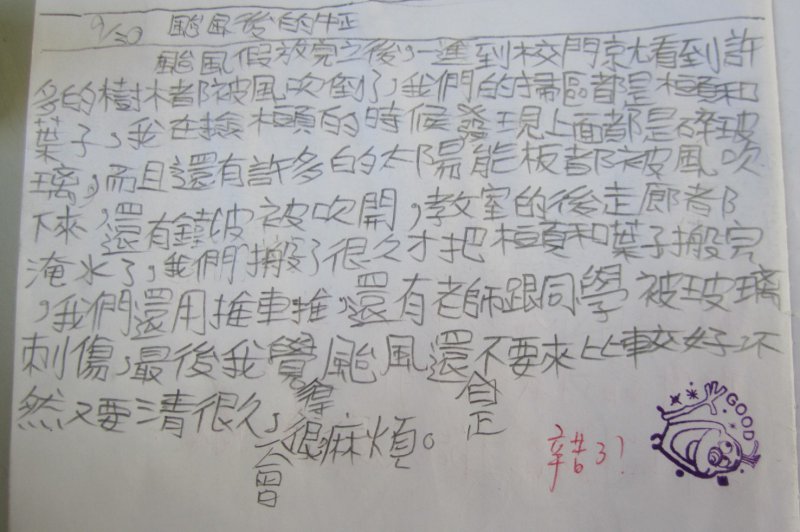 9/30 颱風後的
颱風假放完之後,一進到校門就看到許
多的樹木都被風吹倒了,我們的掃區都是木頭和
葉子,我在撿木頭的時候發現上面都是碎玻
璃,而且還有許多的太陽能板都被風吹
下來,還有鐵皮被吹開,教室的後走廊都
淹水了,我們搬了很久才把木頭和葉子搬完
,我們還用推車推,還有老師跟同學被玻璃
刺傷,最後我覺得颱風還是不要來比較好不
然又要清很久,會很麻煩。
辛苦了!
GOOD